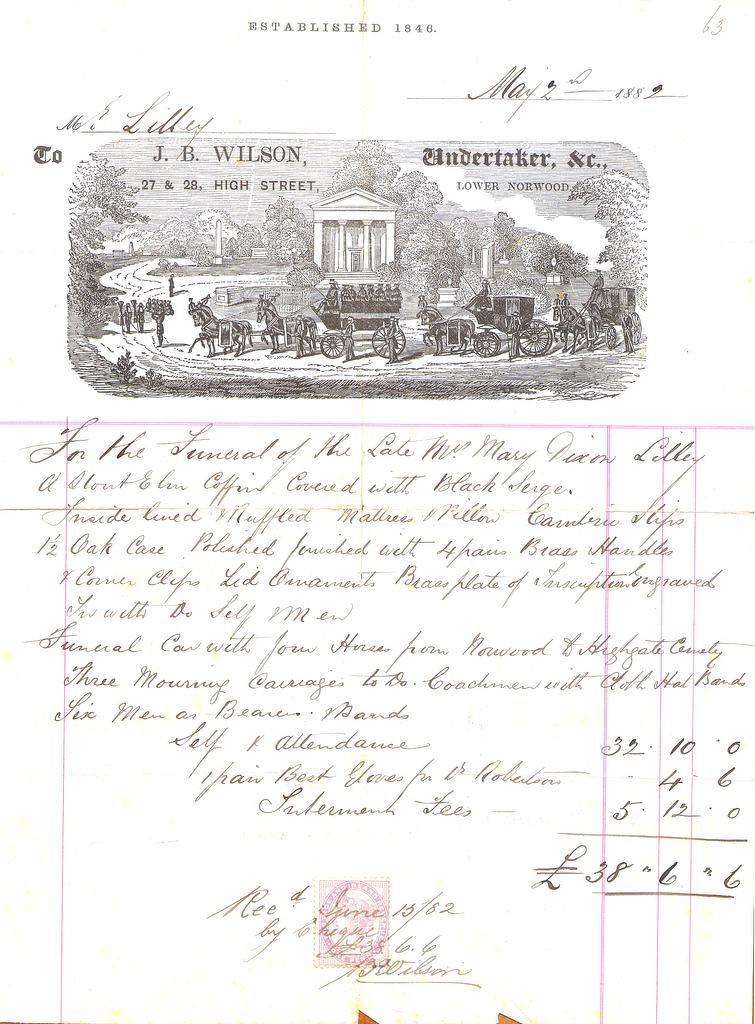 ESTABLISHED 1846.
63
May 2nd 1882
Mr Lilley
To J. B. WILSON, Undertaker, &c.,
27 & 28, HIGH STREET, LOWER NORWOOD,
For the Funeral of the Late Mrs Mary Dixon Lilley
A Stout Elm Coffin Covered with Black Serge.
Inside lined & Ruffled Mattress & Pillow Cambric Slips
1½ Oak Case Polished finished with 4 pairs Brass Handles
& Corner Clips Lid Ornaments Brass plate of Inscription Engraved
In with Do Self Men
Funeral Car with four Horses from Norwood to Highgate Cemety
Three Mourning Carriages to Do. Coachmen with Cloth Hat Bands
Six Men as Bearers. Bands
Self & Attendance 32 . 10 . 0
1 pair Best Gloves for Dr Robertson . 4 . 6
Interment Fees — 5 . 12 . 0
£ 38 " 6 " 6
Recd June 15/82
by Cheque
£38 . 6 . 6
J B Wilson